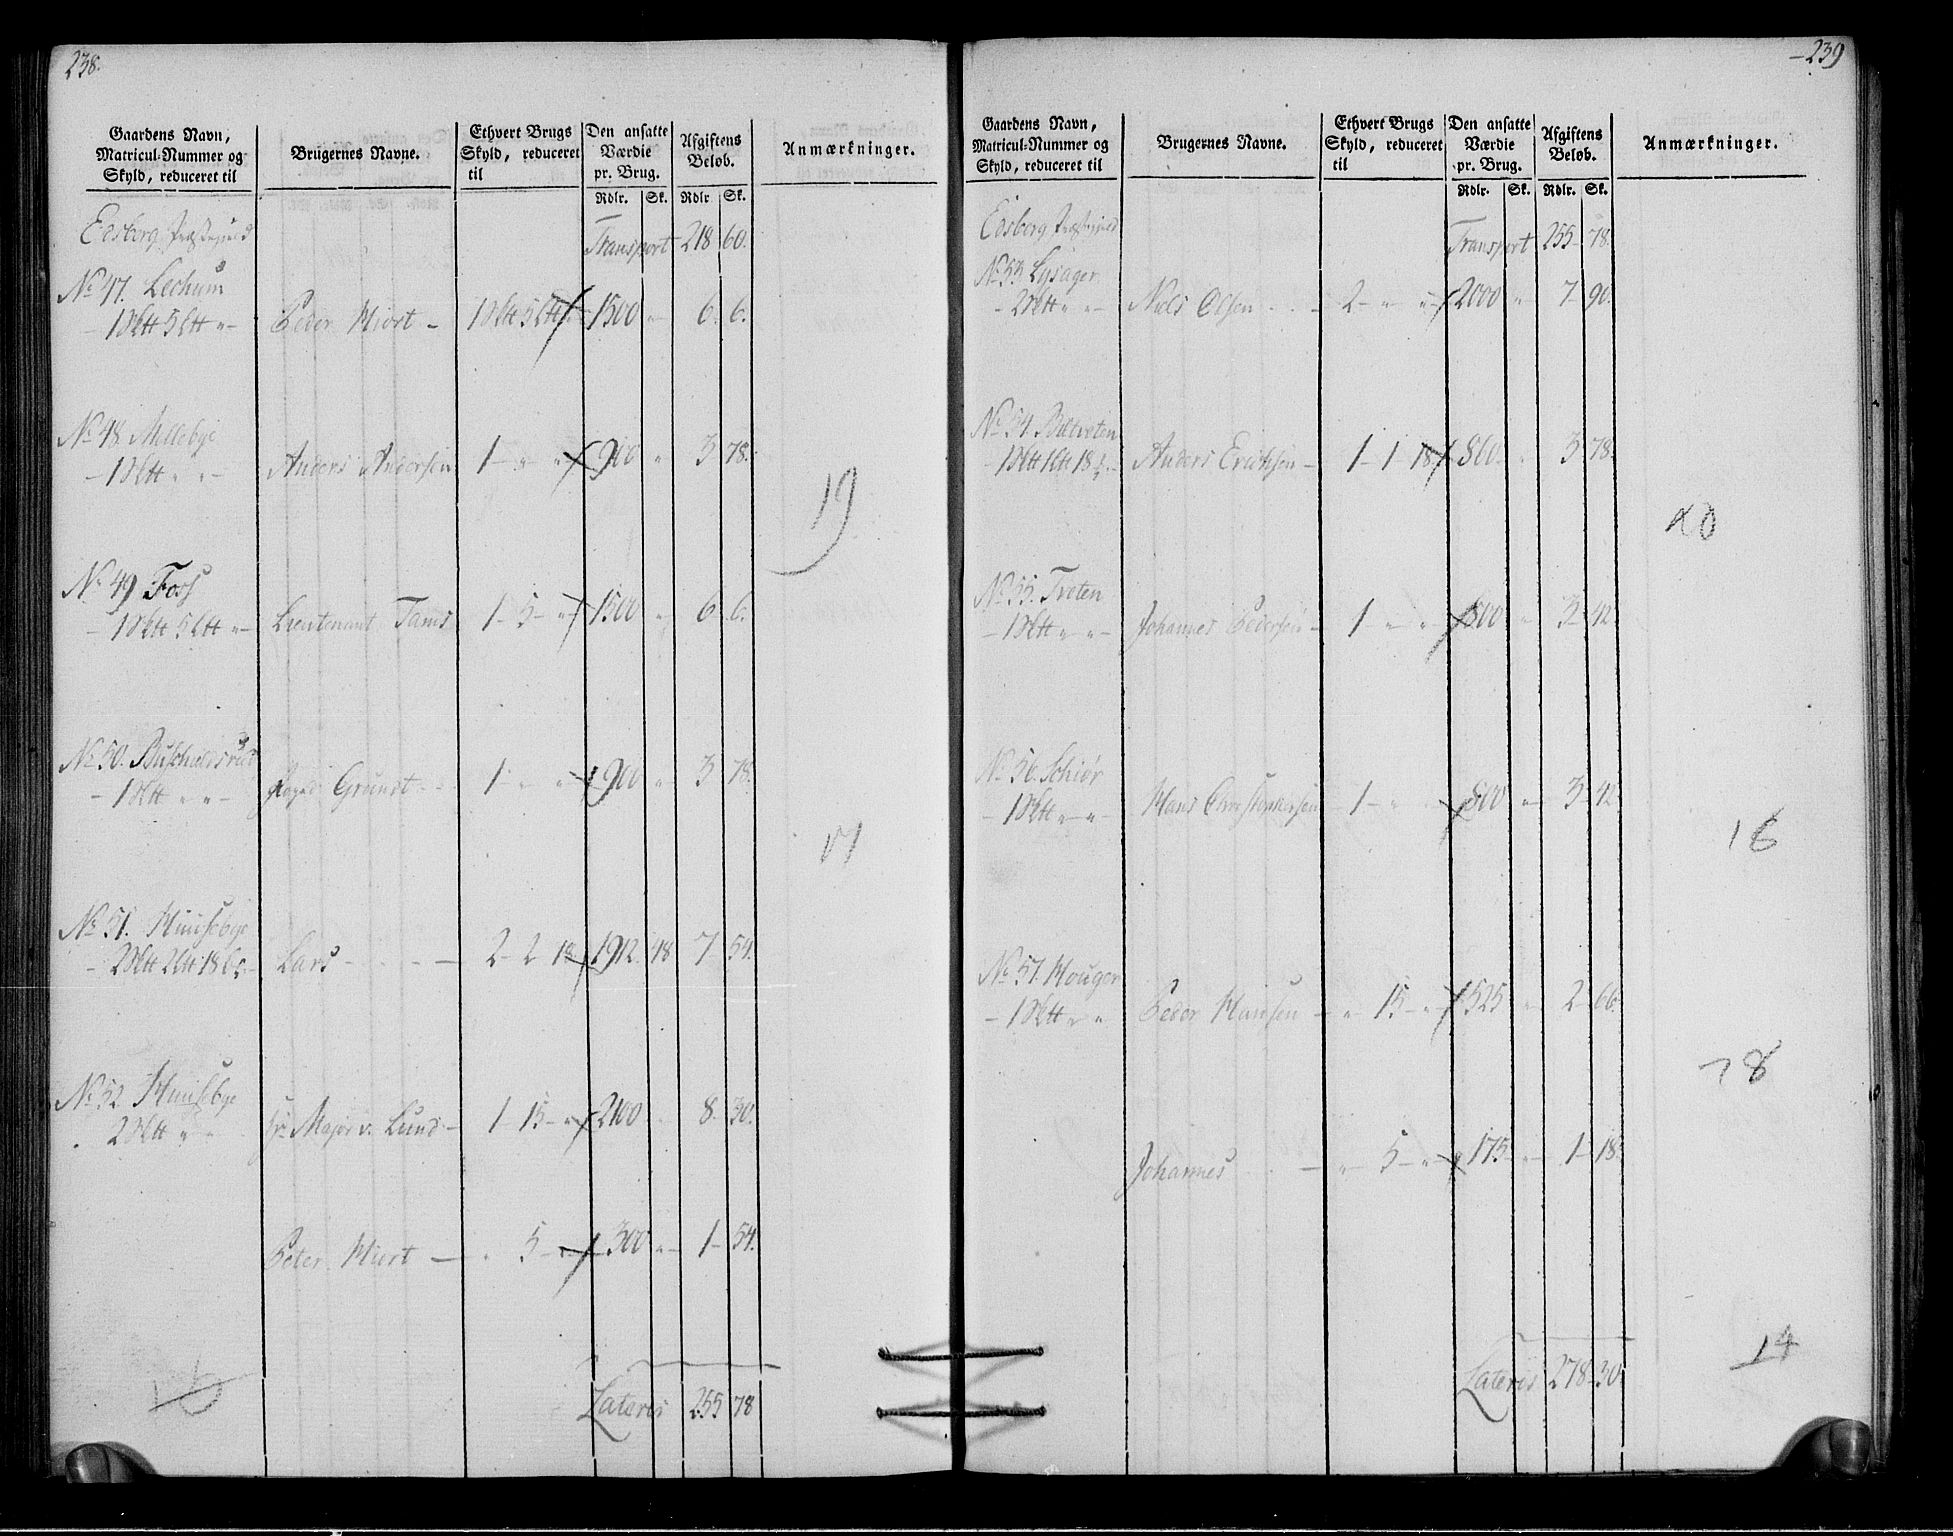 238.
Gaardens Navn, Matricul-Nummer og Skyld, reduceret til
Brugernes Navne.
Ethvert Brugs Skyld, reduceret til
Den ansatte Værdie pr. Brug.
Afgiftens Beløb.
Anmærkninger.
Rdlr. Sk. Rdlr. Sk.
Edsberg Præstegield Transport 218 60.
No 47. Lechum
1 Sktt 5 Ltt " Peder Hiort 1 Sktt 5 Ltt 1500 " 6. 6.
No 48. Mellebye
1 Sktt " " Anders Andersen 1 " " 900 " 3 78.
19
No 49 Foss
1 Sktt 5 Ltt " Lieutenant Tams 1 5 " 1500 " 6 6.
No 50.
1 Sktt " " Grünst 1 " " 900 " 3 78.
No 51. Huusebye
2 Sktt 2 Ltt 18 Lars 2 2 18 1912 48 7 54.
No 52 Huusebye
2 Sktt " " Hr Major v. Lund 1 15 " 2100 8 30.
Peter Hiort " 5 " 300 " 1 54.
Lateris 255 78
239
Gaardens Navn, Matricul-Nummer og Skyld, reduceret til
Brugernes Navne.
Ethvert Brugs Skyld, reduceret til
Den ansatte Værdie pr. Brug.
Afgiftens Beløb.
Anmærkninger.
Rdlr. Sk. Rdlr. Sk.
Edsberg Præstegield Transport 255 78.
No 53. Lysager
2 Sktt " " Niels Olsen 2 " " 2000 " 7 90.
No 54. Butveten
1 Sktt 1 Ltt 18 Anders Erichsen 1 1 18 860. " 3 78.
No 55. Treten
1 Sktt " " Johannes Pedersen 1 " " 800 " 3 42.
No 56. Schiør
1 Sktt " " Hans Christophersen 1 " " 800 " 3 42
16
No 57. Houger
1 Sktt " " Peder Hansen " 15 " 525 " 2 66.
78
Johannes " 5 " 175 " 1 18.
14
Lateris 278 30